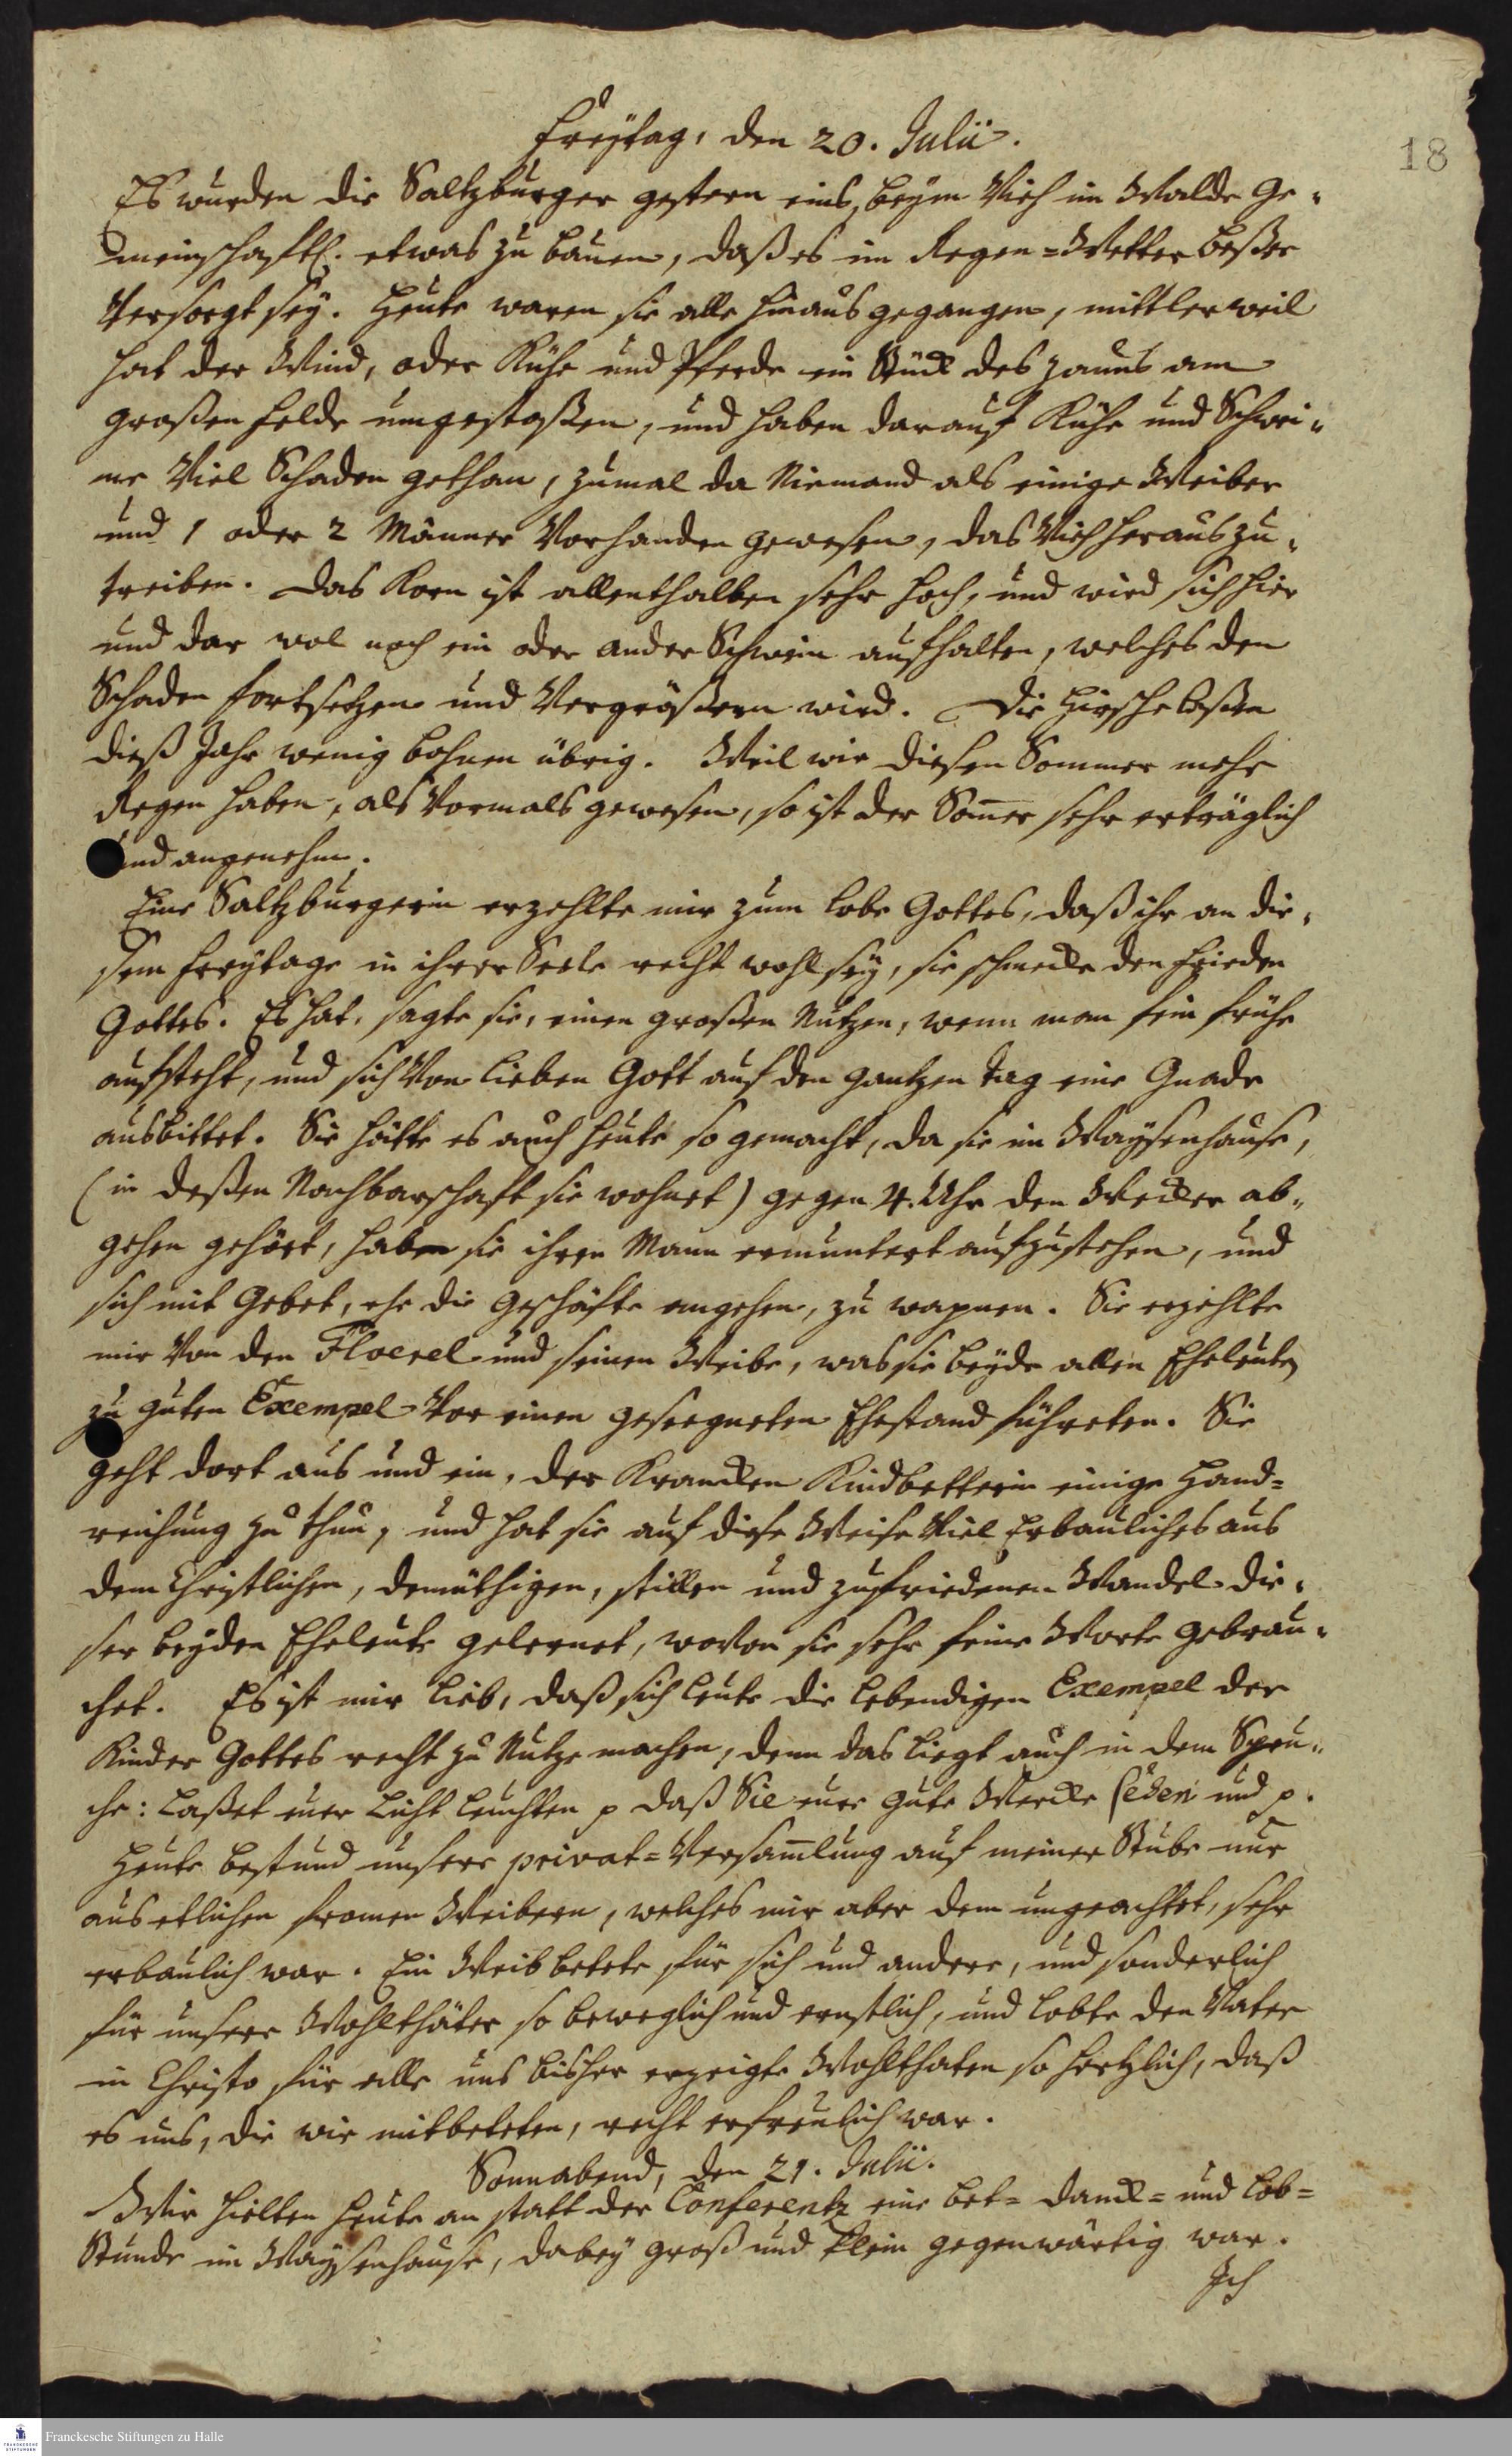 Freytag, den 20. Julii.
18
Es wurden die Saltzburger gestern eins, beym Vieh im Walde Ge-
meinschaftl. etwas zu bauen, daß es im Regen-Wetter beßer
Versorgt sey. Heute waren sie alle hinaus gegangen, mittlerweil
hat der Wind, oder Kühe und Pferde ein Stück des zauns am
großen felde umgestoßen, und haben darauf Kühe und Schwei-
ne Viel Schaden gethan, zumal da Niemand als einige Weiber
und 1 oder 2 Männer Vorhanden gewesen, das Vieh heraus zu-
treiben. Das Korn ist allenthalben sehr hoch, und wird sich hier
und dar wol noch ein oder ander Schwein aufhalten, welches den
Schaden fortsetzen und Vergrößern wird. Die Hirsche laßen
dieß Jahr wenig bohnen übrig. Weil wir diesen Sommer mehr
Regen haben, als Vormals gewesen, so ist der Som̄er sehr erträglich
und angenehm.
Eine Saltzburgerin erzehlte mir zum Lobe Gottes, daß ihr an die-
sem Freytage in ihrer Seele recht wohl sey, sie schmecke den Frieden
Gottes. Es hat, sagte sie, einen großen Nutzen, wenn man fein frühe
aufsteht, und sich Von lieben Gott auf den gantzen tag eine Gnade
ausbittet. Sie hätte es auch heute so gemacht, da sie im Waysenhause,
(in deßen Nachbarschaft sie wohnet) gegen 4. Uhr den Wecker ab-
gehen gehört, habe sie ihren Mann ermuntert aufzustehen, und
sich mit Gebet, ehe die Geschäfte angehen, zu wapnen. Sie erzehlte
mir Von den Floerel und seinen Weibe, was sie beyde allen Eheleuten
zu guten Exempel Vor einen geseegneten Ehestand führeten. Sie
geht dort aus und ein, der Krancken Kindbetterin einige Hand-
reichung zu thun, und hat sie auf diese Weise Viel Erbauliches aus
dem Christlichen, demüthigen, stillen und zufriedenen Wandel die-
ser beyden Eheleute gelernet, wovon sie sehr feine Worte gebrau-
chet. Es ist mir lieb, daß sich leute die lebendigen Exempel der
Kinder Gottes recht zu Nutze machen, denn das liegt auch in dem Spru-
che: Laßet euer Licht leuchten p daß Sie eure gute Wercke sehen und p.
Heute bestund unsere privat-Versam̄lung auf meiner Stube nur
aus etlichen fromen Weibern, welches mir aber dem ungeachtet, sehr
erbaulich war. Ein Weib betete für sich und andere, und sonderlich
für unsere Wohlthäter so beweglich und ernstlich, und lobte den Vater
in Christo für alle uns bisher erzeigte Wohlthaten so hertzlich, daß
es uns, die wir mitbeteten, recht erfreulich war.
Sonnabend, den 21. Julii.
Wir hielten heute an statt der Conferentz eine bet- danck- und Lob-
Stunde im Waysenhause, dabey groß und klein gegenwärtig war.
Ich
Franckesche Stiftungen zu Halle